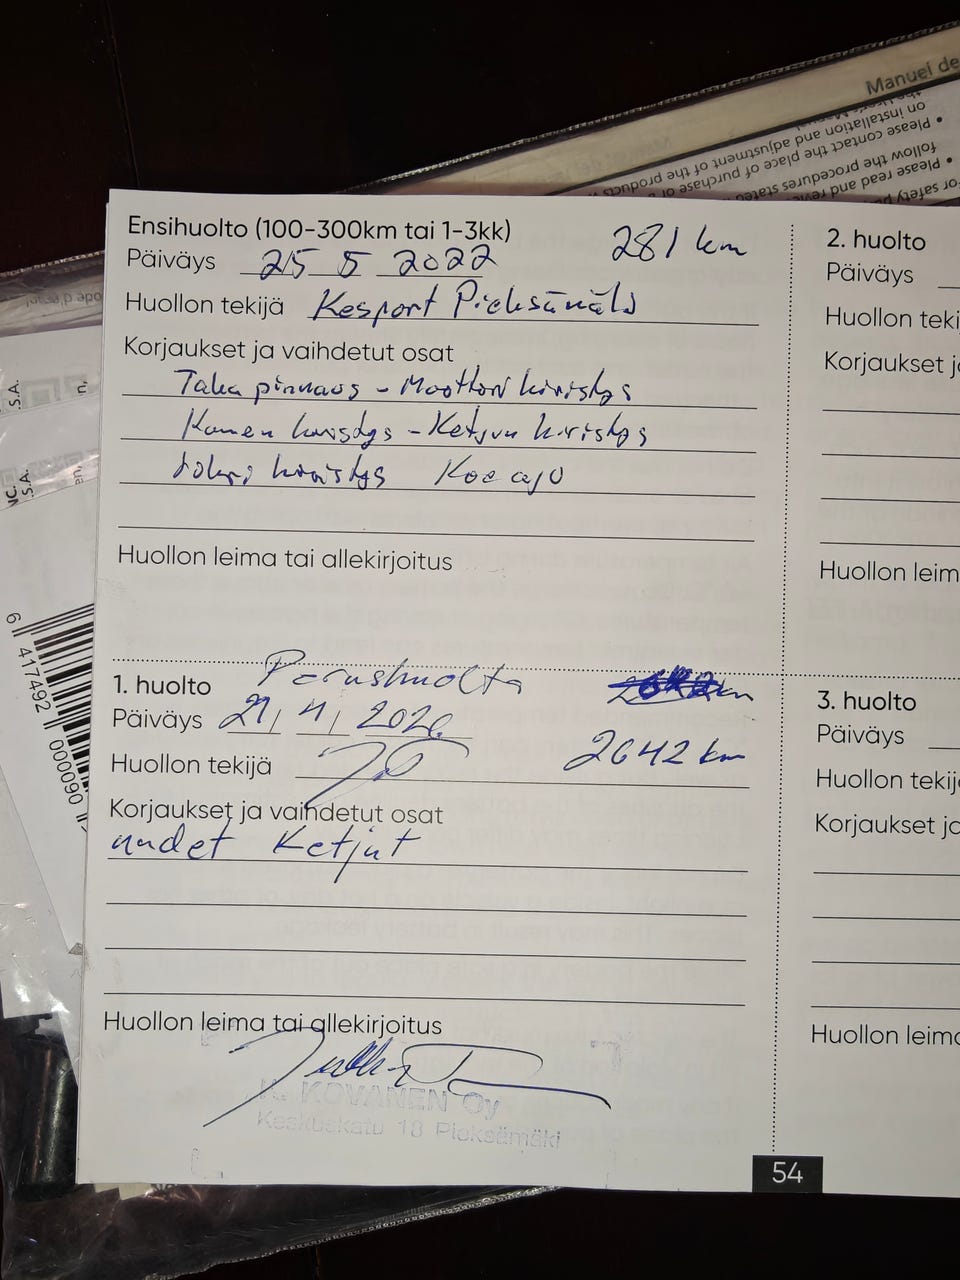 Manuel de
on installation and adjustment of the products
• Please contact the place of purchase
follow the procedures stated
• Please read and
For safety
Ensihuolto (100-300km tai 1-3kk) 281 km
Päiväys 25 5 2022
Huollon tekijä Kesport Pieksämäki
Korjaukset ja vaihdetut osat
Taka pinnaus - Moottori kiristys
Kamen kiristys - Ketjun kiristys
kiristys Koe ajo
Huollon leima tai allekirjoitus
1. huolto Perushuolto
Päiväys 21/ 4/ 2026
2642 km
Huollon tekijä
Korjaukset ja vaihdetut osat
uudet Ketjut
Huollon leima tai allekirjoitus
K. KOVANEN Oy
Keskuskatu 18 Pieksämäki
2. huolto
Päiväys
Huollon teki
Korjaukset jo
Huollon leim
3. huolto
Päiväys
Huollon tekij
Korjaukset jo
Huollon leima
54
6 417492 000090
S.A.
S.A.